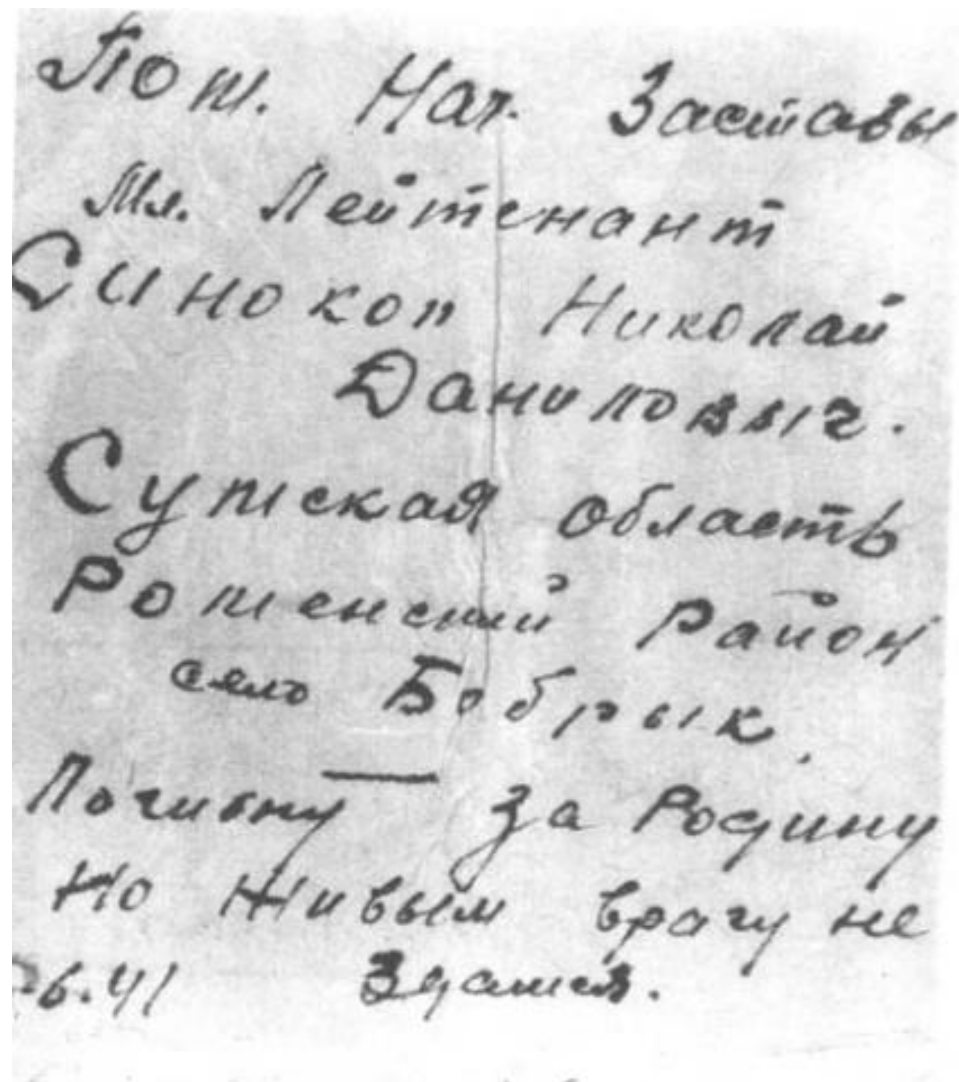 Пом. Нач. Заставы
Мл. Лейтенант
Синокоп Николай
Даниловыч.
Сумская область
Роменский Район
село Бобрык.
Погибну за Родину
но живым врагу не
6.41 Здамся.